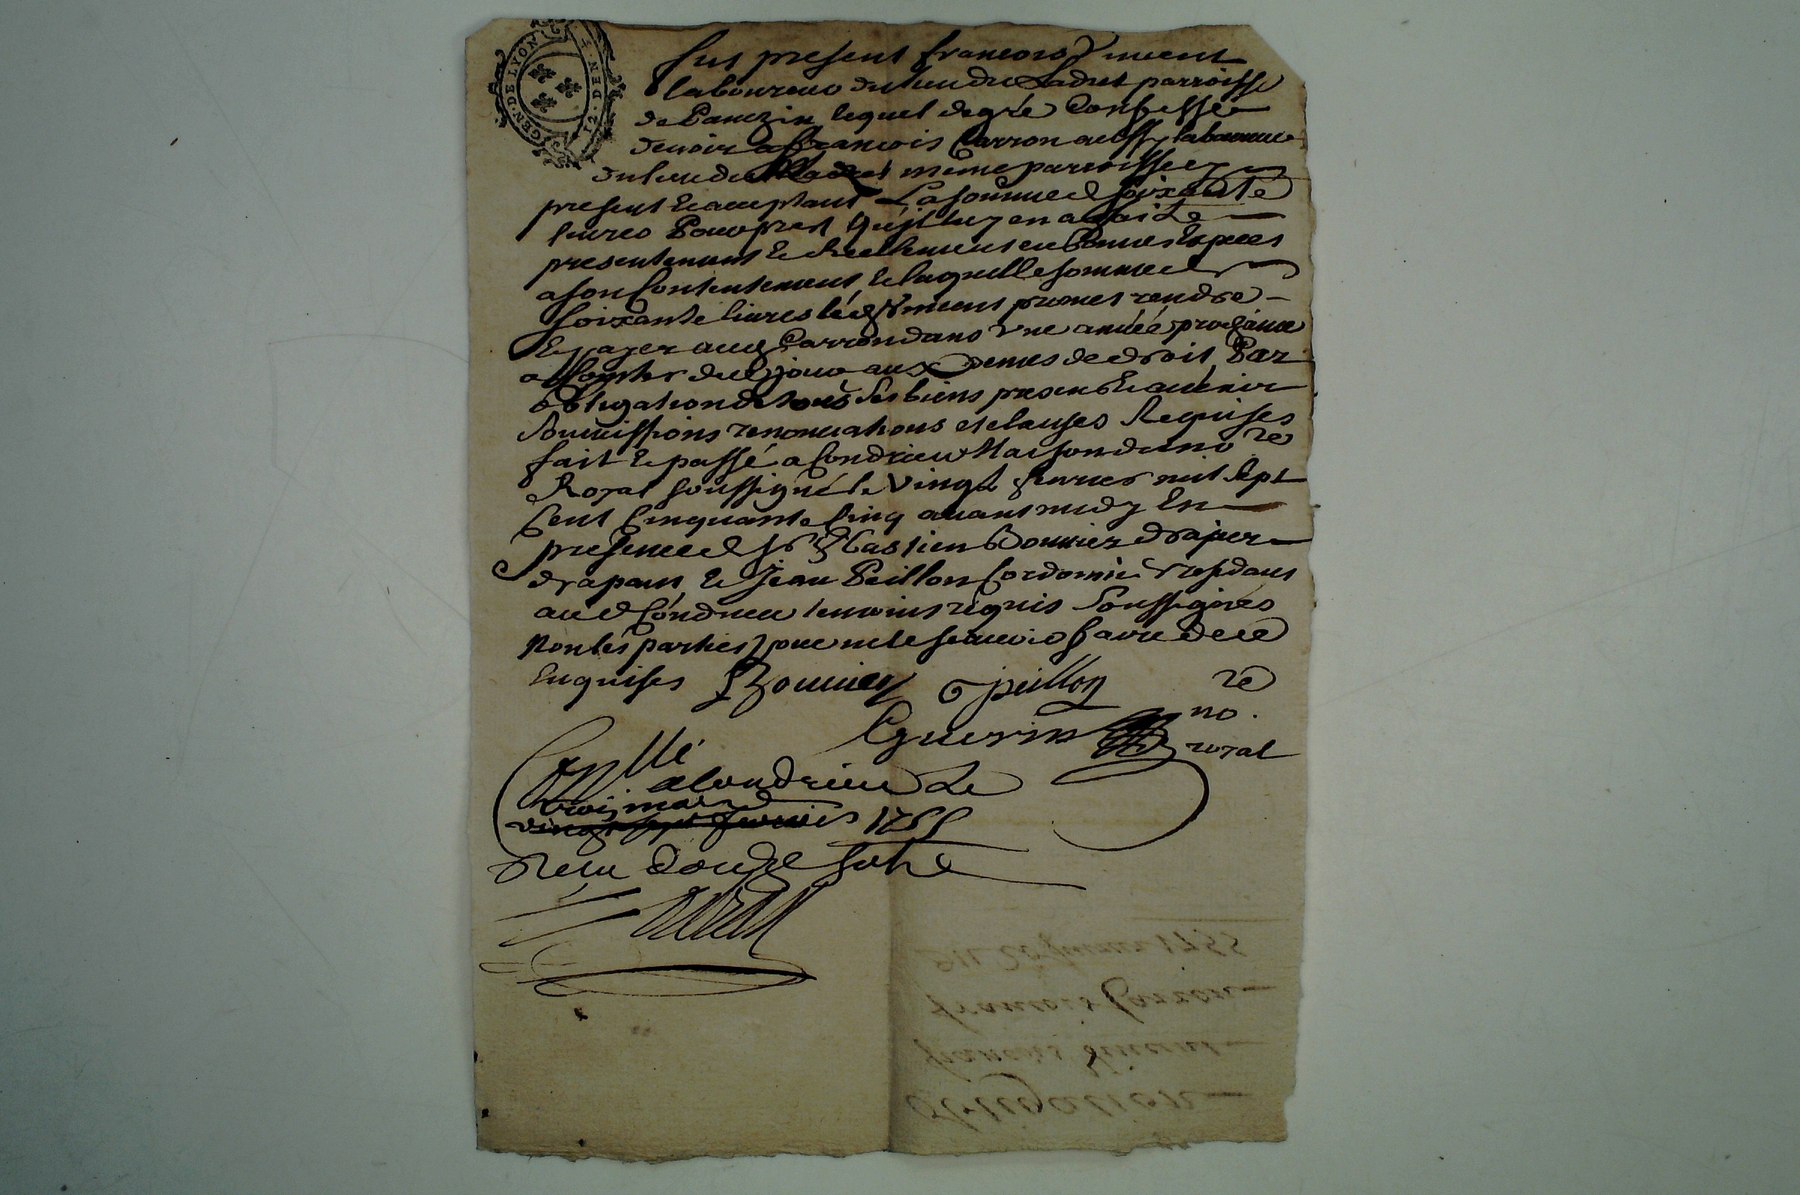 GEN · DE · LYON · 12 · DEN 4
fut present francois Vincent
laboureur du lieu du Ladret parroisse
de lequel de gré Confesse
devoir a francois Carron aussy laboureur
du lieu du Ladret meme parroisse
present & acceptant La somme de soixante
livres Pour pret qu'il luy en a fait
presentement & Reellement en Bonnes Especes
a son Contentement, & laquelle somme de
soixante livres led Vincent promet rendre
Et payer aud Carron dans Vne année prochaine
a Compter de ce jour aux de droit Par
obligation de tous ses biens presens & avenir
soumissions renonciations et clauses Requises
fait & passé a Condrieu Maison du no re
Royal soussigné le vingt fevrier mil sept
Cent Cinquante Cinq avant midy En
presence de Sr Bastien Bonnier drapier
drapant & Jean Peillon Cordonnier residans
aud Condrieu temoins requis soussignes
Non les parties pour ne le scavoir faire de ce
Enquises Bonnier peillon
Guerin no re royal
Con llé a Condrieu Le
trois mars
vingt sept fevrier 1755
Recu douze sols
obligation
francois Vincent
francois Carron
Du 20 fevrier 1755